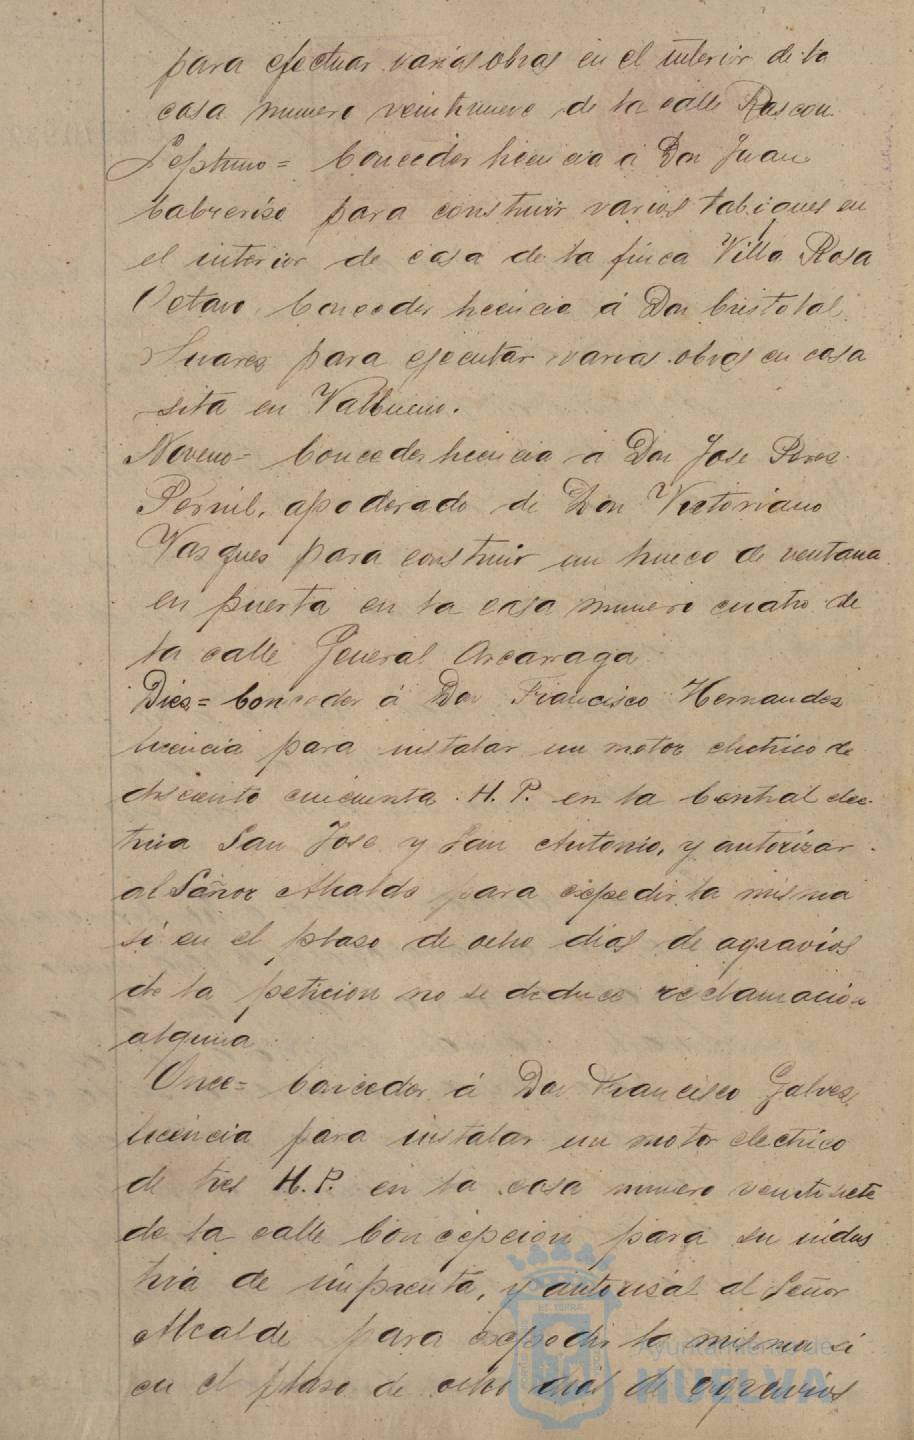 para efectuar varias obras en el interior de la
casa numero veintinueve de la calle Rascon
Septimo = Conceder licencia á Don Juan
Cabrerizo para construir varios tabiques en
el interior de casa de la finca Villa Rosa
Octavo, Conceder licencia á Don Cristobal
Suarez para ejecutar varias obras en casa
sita en Valbueno.
Noveno = Conceder licencia a Don Jose Perez
Pernil, apoderado de Don Victoriano
Vasques para construir un hueco de ventana
en puerta en la casa numero cuatro de
la calle General Arcarraga
Dies = Conceder á Don Francisco Hernandez
licencia para instalar un motor electrico de
doscientos cincuenta H. P. en la Central elec-
trica San Jose y San Antonio, y autorizar
al Señor Alcalde para expedir la misma
si en el plaso de ocho dias de agravios
de la peticion no se deduce reclamacion
alguna
Once = Conceder á Don Francisco Galvez
licencia para instalar un motor electrico
de tres H. P. en la casa numero veintisiete
de la calle Concepcion para su indus
tria de imprenta, y autorisar al Señor
Alcalde para expedir la misma si
en el plaso de ocho dias de agravios
Ayuntamiento de
HUELVA